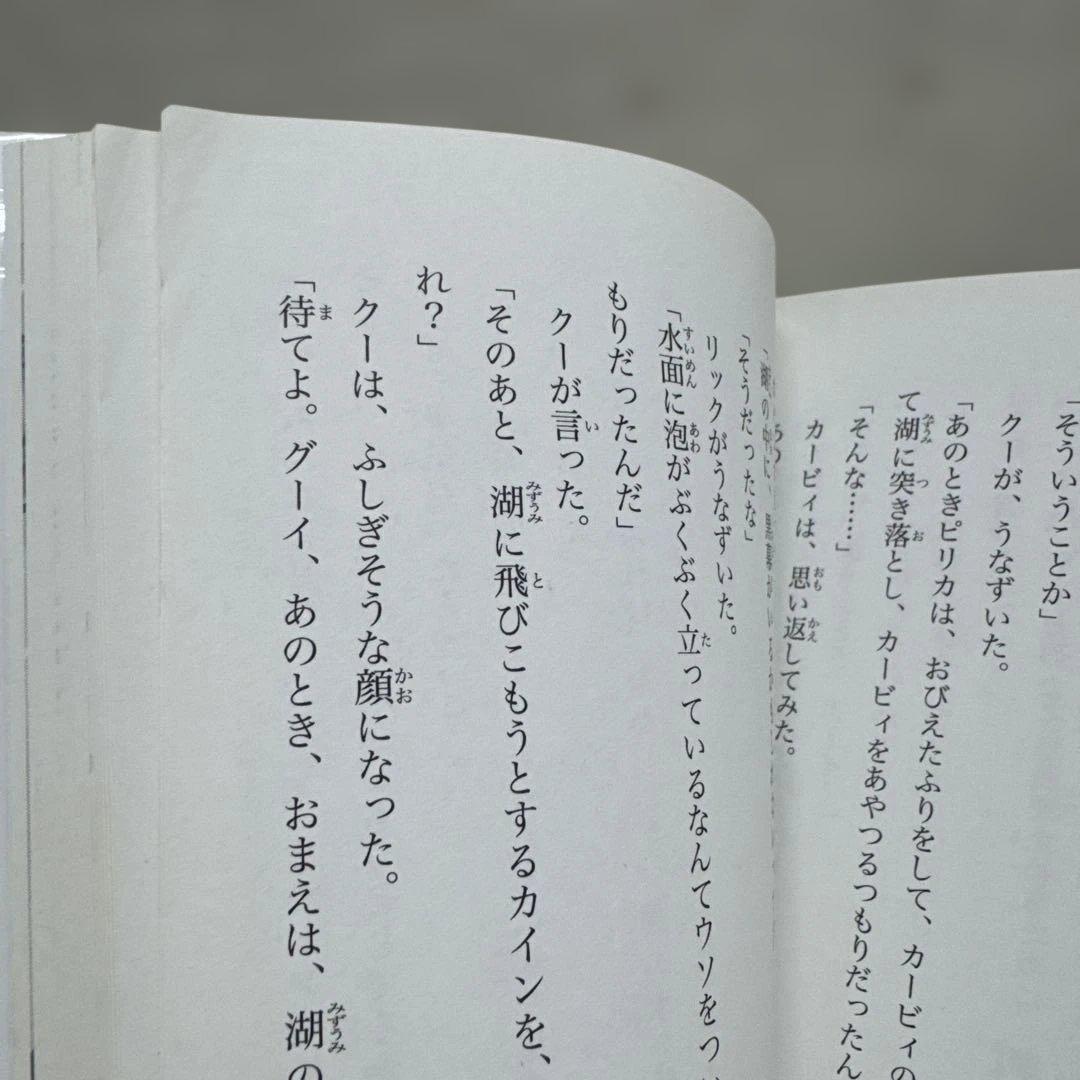 「そういうことか」
クーが、うなずいた。
「あのときピリカは、おびえたふりをして、カービィの
て湖に突き落とし、カービィをあやつるつもりだったん
「そんな……」
カービィは、思い返してみた。
「そうだったな」
リックがうなずいた。
「水面に泡がぶくぶく立っているなんてウソをつ
もりだったんだ」
クーが言った。
「そのあと、湖に飛びこもうとするカインを、
れ？」
クーは、ふしぎそうな顔になった。
「待てよ。グーイ、あのとき、おまえは、湖の